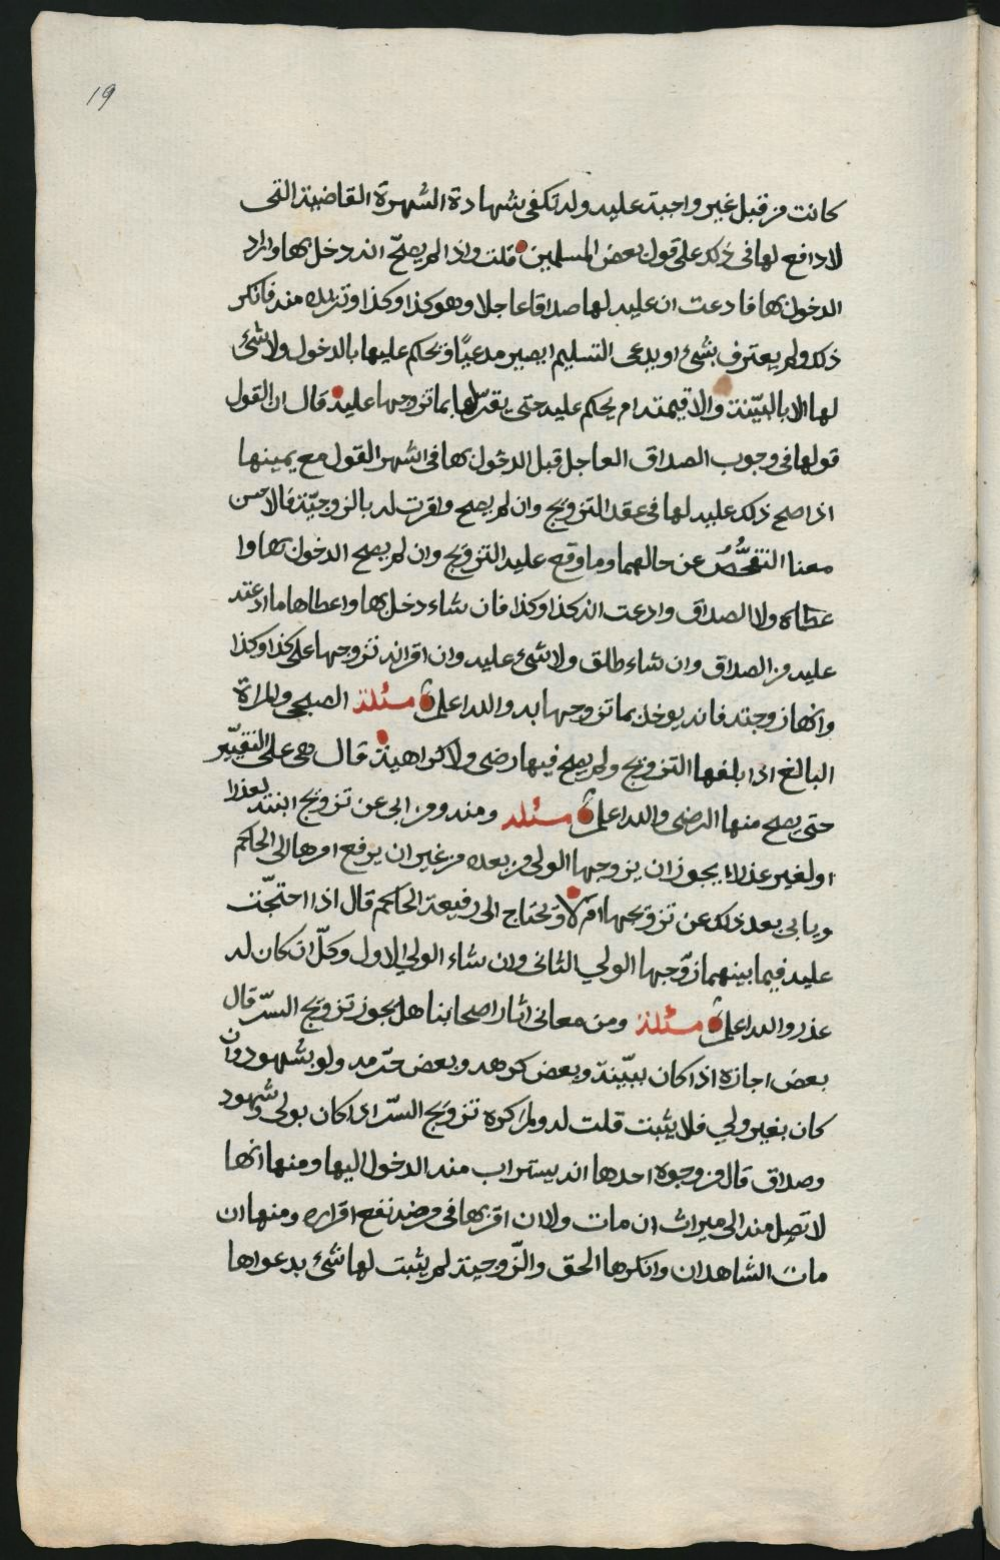 19
كانت من قبل غير واجبة عليه وله تكفى شهادة الشهرة القاضية التى
لا دافع لها فى ذلك على قول بعض المسلمين قلت واذا لم يصحّ انه دخل بها واراد
الدخول بها فادعت ان عليه لها صداقا عاجلا وهو كذا وكذا وتريده منه فانكر
ذلك ولم يعترف بشىء او يدعى التسليم ايصير مدعيًا ويحكم عليها بالدخول ولا شىء
لها الا بالبيّنة والا قيمته ام يحكم عليه حتى يقرّ لها بما تزوجها عليه قال ان القول
قولها فى وجوب الصداق العاجل قبل الدخول بها فى الشهر القول مع يمينها
اذا صح ذلك عليه لها فى عقد التزويج وان لم يصح واقرت له بالزوجيّة فالاحسن
معنا التفحُّصُ عن حالهما وما وقع عليه التزويج وان لم يصح الدخول بها وا
عطاه ولا الصداق وادعت انه كذا وكذا فان شاء دخل بها واعطاها ما ادعته
عليه من الصداق وان شاء طلق ولا شىء عليه وان اقر انه تزوجها على كذا وكذا
وانها زوجته فانه يوخذ بما تزوجها به والله اعلم مسئلة الصبحى والمراة
البالغ اذا بلغها التزويج ولم يصح فيها رضى ولا كراهية قال هى على التغيّر
حتى يصح منها الرضى والله اعلم مسئله ومنه ومن ابى عن تزويج ابنته لعذر
او لغير عذر ايجوز ان يزوجها الولى من بعده من غير ان يرفع امرها الى الحاكم
ويابى بعد ذلك عن تزويجها ام لا ويحتاج الى رفيعة الحاكم قال اذا احتجّت
عليه فيما بينهما زوّجها الولي الثانى وان شاء الولي الاول وكلّ ان كان له
عذر والله اعلم مسئلة ومن معانى اثار اصحابنا هل يجوز تزويج السرّ قال
بعض اجازه اذا كان ببيّنة وبعض كرهه وبعض حرّمه ولو بشهود وان
كان بغير ولي فلا يثبت قلت له ولم كره تزويج السرّ اذا كان بولى وشهود
وصداق قال من وجوه احدها انه يستراب منه الدخول اليها ومنها انها
لا تصل منه الى ميراث ان مات ولا ان اقر بها فى مرضه نفع اقراره ومنها ان
مات الشاهدان وانكرها الحق والزّوجية لم يثبت لها شىء بدعواها